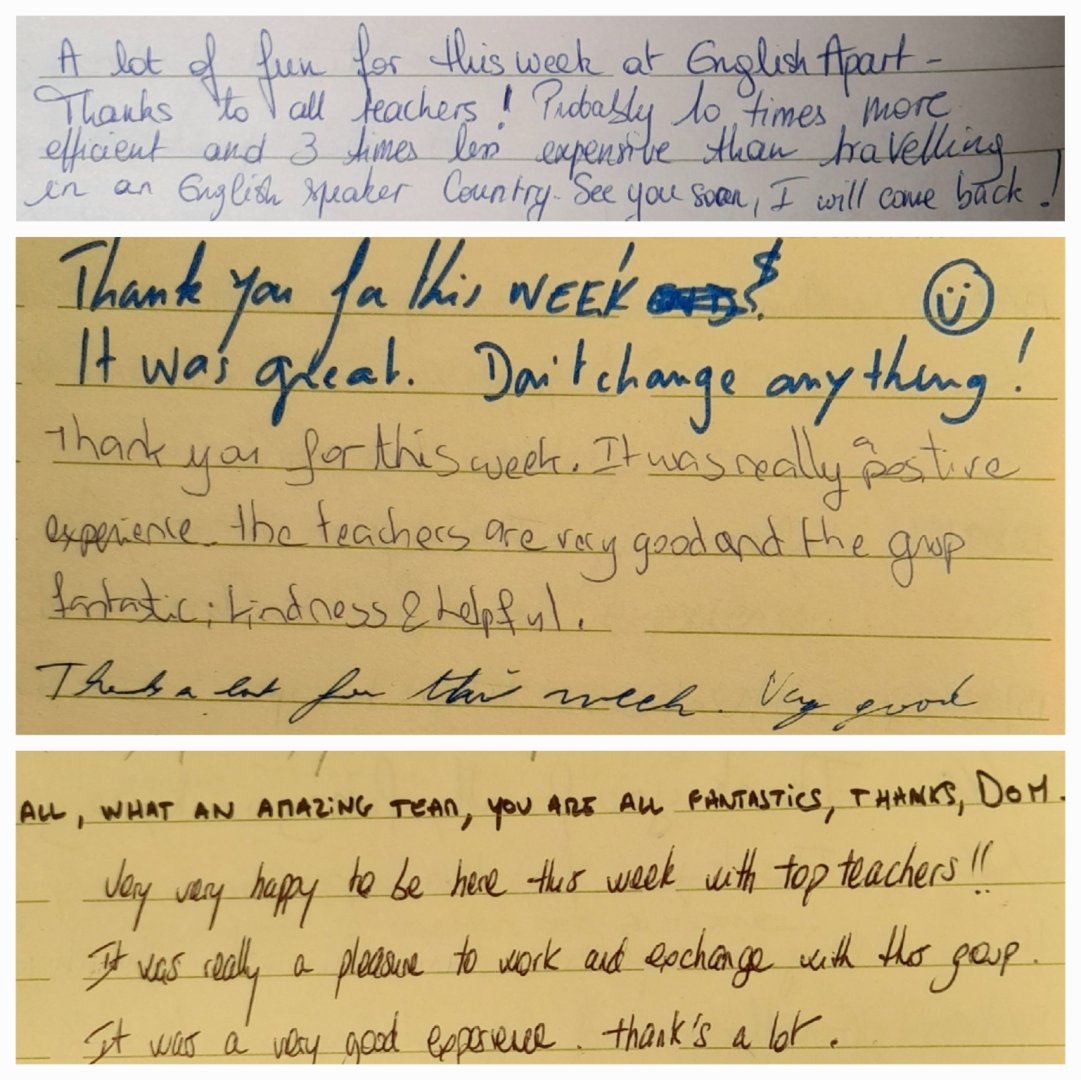 A lot of fun for this week at English Apart -
Thanks to all teachers! Probably 10 times more
efficient and 3 times less expensive than travelling
in an English speaker Country. See you soon, I will come back!
Thank you for this WEEK
It was great. Don't change anything!
Thank you for this week. It was really a postive
experience. the teachers are very good and the group
fantastic; kindness & helpful.
Thanks a lot for this week. Very good
ALL, WHAT AN AMAZING TEAM, YOU ARE ALL FANTASTICS, THANKS, DOM.
Very very happy to be here this week with top teachers!!
It was really a pleasure to work and exchange with this group.
It was a very good experience. thank's a lot.